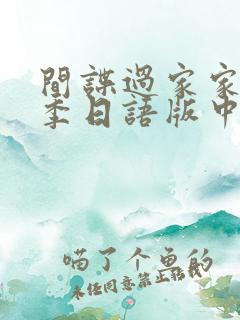 間諜過家家
季日語版中
喵了个鱼的
未经同意禁止转载